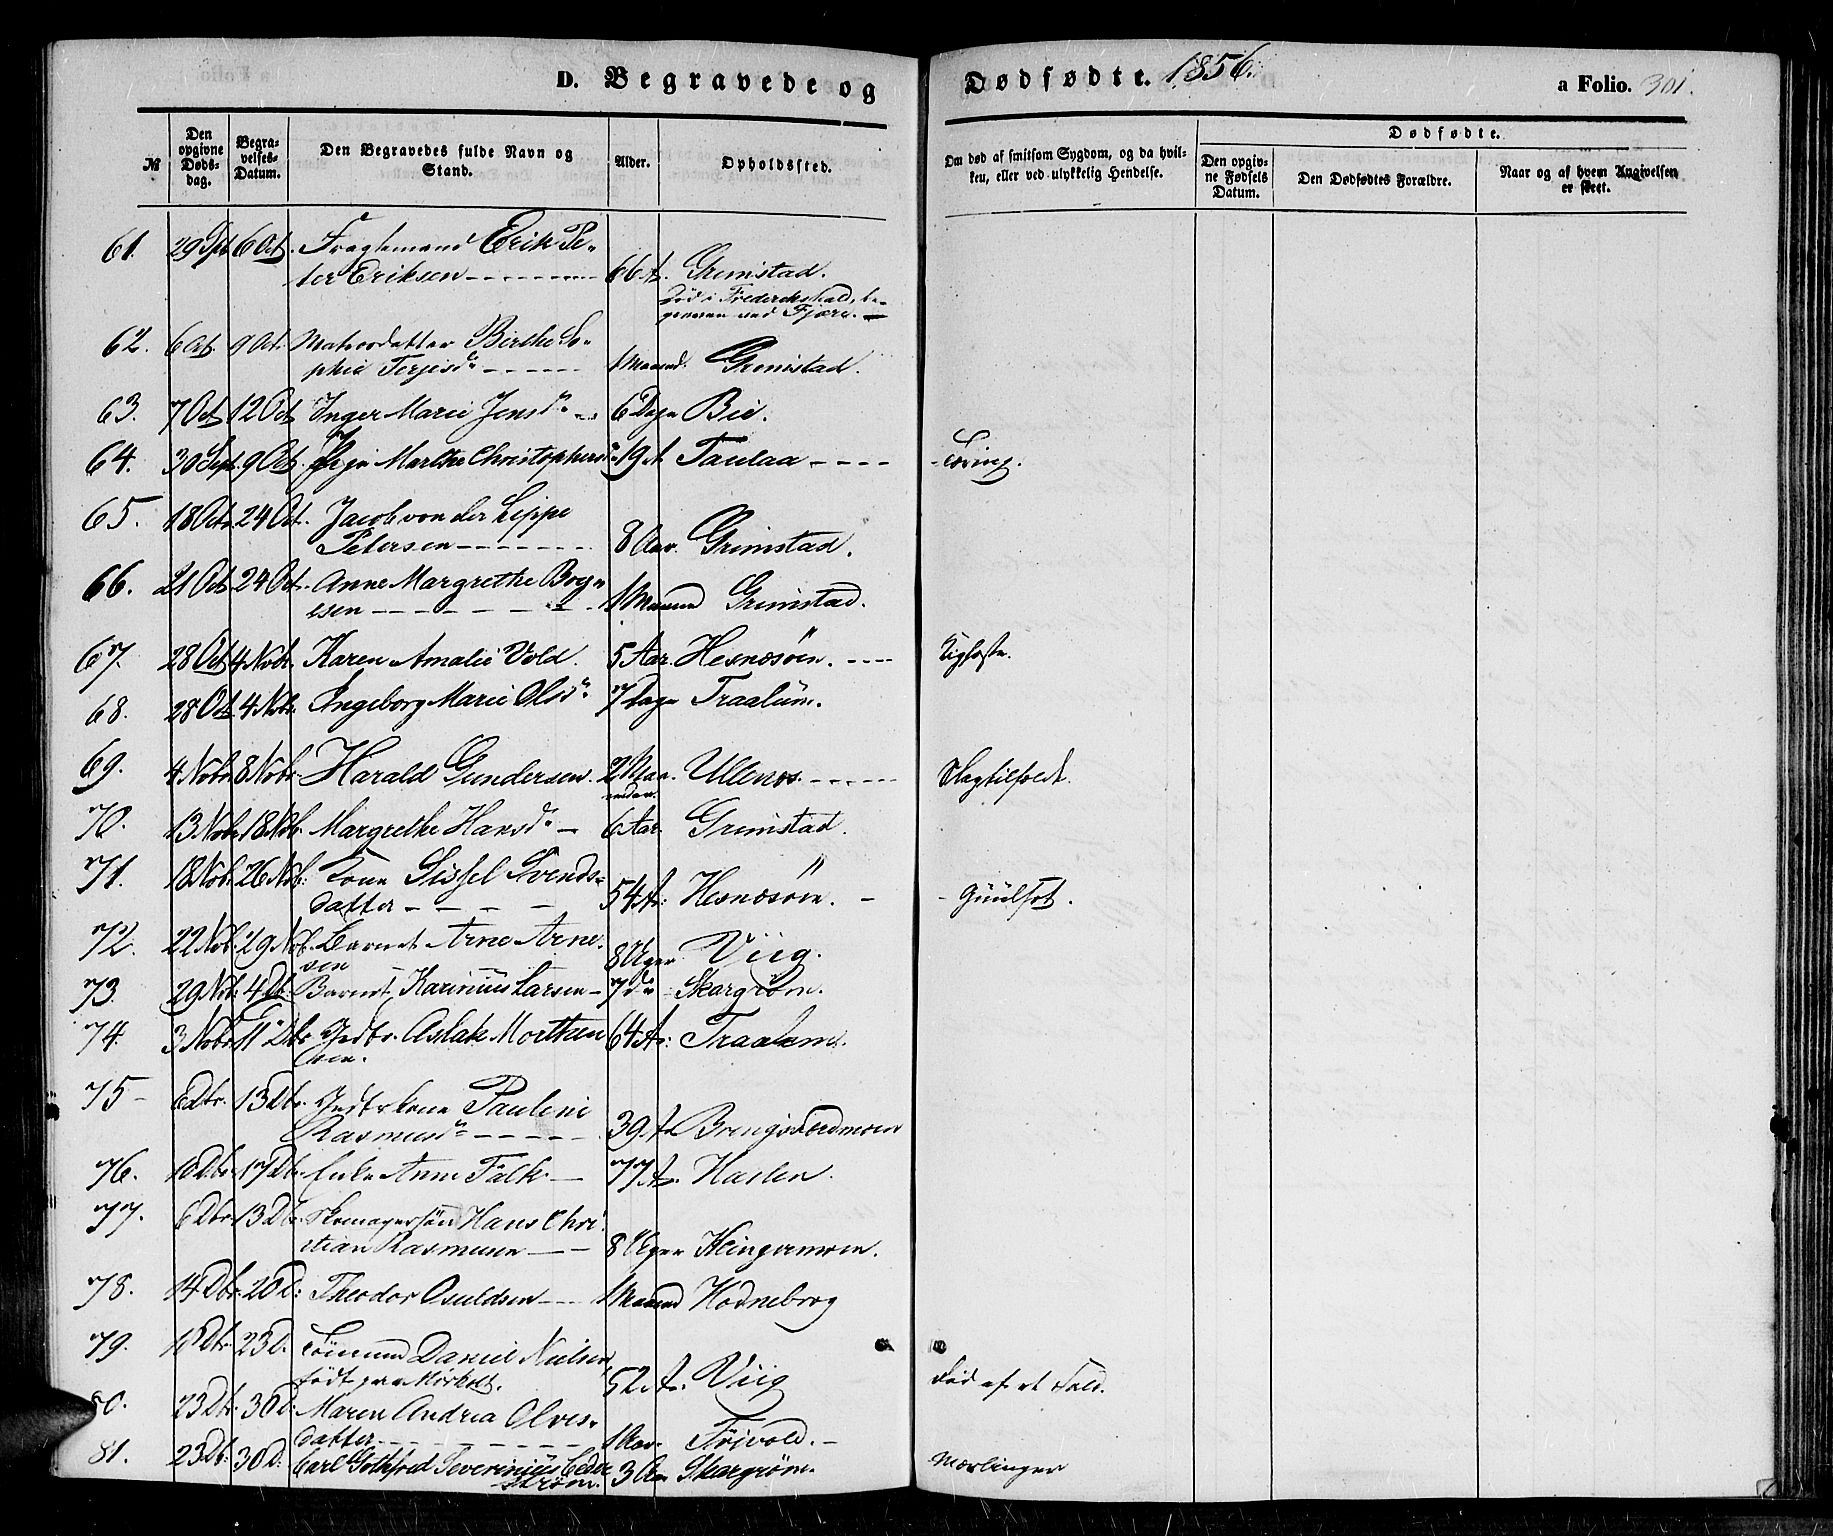 D. Begravede og Dødfødte. 1856. a Folio. 301.
№ Den opgivne Døds-dag. Begra-velses-Datum. Den Begravedes fulde Navn og Stand. Alder. Opholdssted. Om død af smitsom Sygdom, og da hvil-ken, eller ved ulykkelig Hendelse. Dødfødte. Den opgiv-ne Fødsels Datum. Den Dødfødtes Forældre. Naar og af hvem Angivelsen er skeet.
61. 29 Spt 6 Oct. Fragtemand Erik Pe-
ter Eriksen 66 A. Grimstad.
Død i Frederikshald, be-
graven ved Fjære.
62. 6 Oct. 9 Oct. Matrosdatter Birthe So-
phie Terjesdr 1 Maaned. Grimstad.
63. 7 Oct 12 Oct Inger Marie Jensdr 6 Dage Bie.
64. 30 Sept. 9 Oct. Marthe Christophersdr 19 A Taulaa Tæring.
65. 18 Oct 24 Oct. Jacob von der Lippe
Petersen 8 Aar. Grimstad.
66. 21 Oct 24 Oct. Anne Margrethe Boy-
esen 1 Maaned Grimstad.
67. 28 Oct 4 Nobr. Karen Amalie Vold. 5 Aar. Hesnesøen.
68. 28 Oct 4 Nobr. Ingeborg Marie Olsdr 7 Dage Traalum.
69. 4 Nobr 8 Nobr. Harald Gundersen. 2 Maa-
neder. Ullenes Slagtilfælde.
70. 13 Nobr 18 Nobr. Margrethe Hansdr 6 Aar. Grimstad.
71. 18 Nob. 26 Nob: Kone Sissel Svends-
datter 54 A: Hesnesøen. Guulsot.
72. 22 Nob. 29 Nob. Barnet Arne Arne-
sen 8 Uger Viig.
73. 29 Nob: 4 Db. Barnet Karinius Larsen 7 do Skargrøm.
74. 3 Nobr 11 Dbr Indtr. Aslak Morthen-
sen. 64 A: Traalum.
75 6 Dbr. 13 Dbr. Indtrkone Pauline
Rasmusdr 39 A Bringsværdmoen
76. 10 Dbr. 17 Dbr. Enke Anne Falk 77 A. Haslen.
77. 6 Dbr. 13 Dbr. Skomagersøn Hans Chri-
stian Rasmusen 8 Uger Klingermoen.
78. 14 Dbr. 20 D: Theodor Osuldsen 1 Maaned Hodneborg
79. 16 Dbr. 23 D. Sømand Daniel Nielsen,
født paa Mørholt. 52 A: Viig Død af et Fald.
80. 23 Dbr. 30 D: Maren Andrea Olves-
datter 1 Aar. Frivold.
81. 23 Db: 30 D: Carl Gothfred Severinius Ceder-
strøm. 3 Aar Skargrøm. Mæslinger